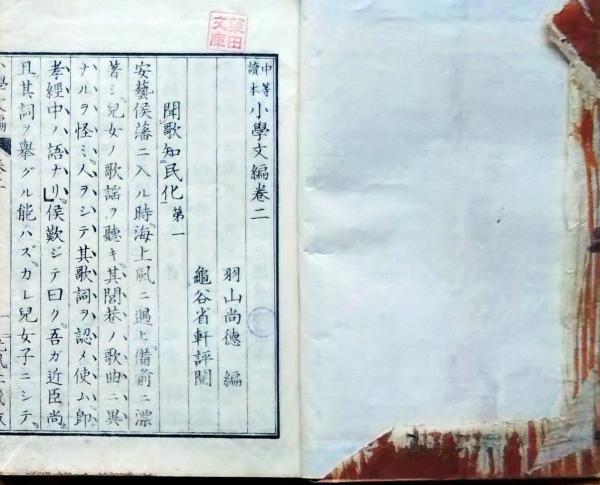 葉田文庫
中等讀本 小學文編卷二
羽山尚德 編
龜谷省軒評閲
聞歌知民化 第一
安藝侯藩ニ入ル時海上風ニ遇ヒ備前ニ漂
著シ兒女ノ歌謠ヲ聽キ其閭巷ノ歌曲ニ異
ナルヲ怪ミ人ヲシテ其歌詞ヲ認メ使ム即
孝經中ノ語ナリ侯歎ジテ曰ク吾ガ近臣尚
且其詞ヲ擧グル能ハズカレ兒女子ニシテ